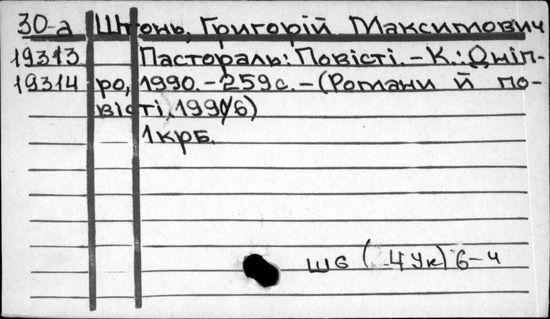 30-а Штонь, Григорій Максимович
19313 Пастораль: Повісті. – К.: Дніп-
19314 ро, 1990. – 259с. – (Романи й по-
вісті, 1990/6)
1крб.
Ш6 (4Ук) 6-4